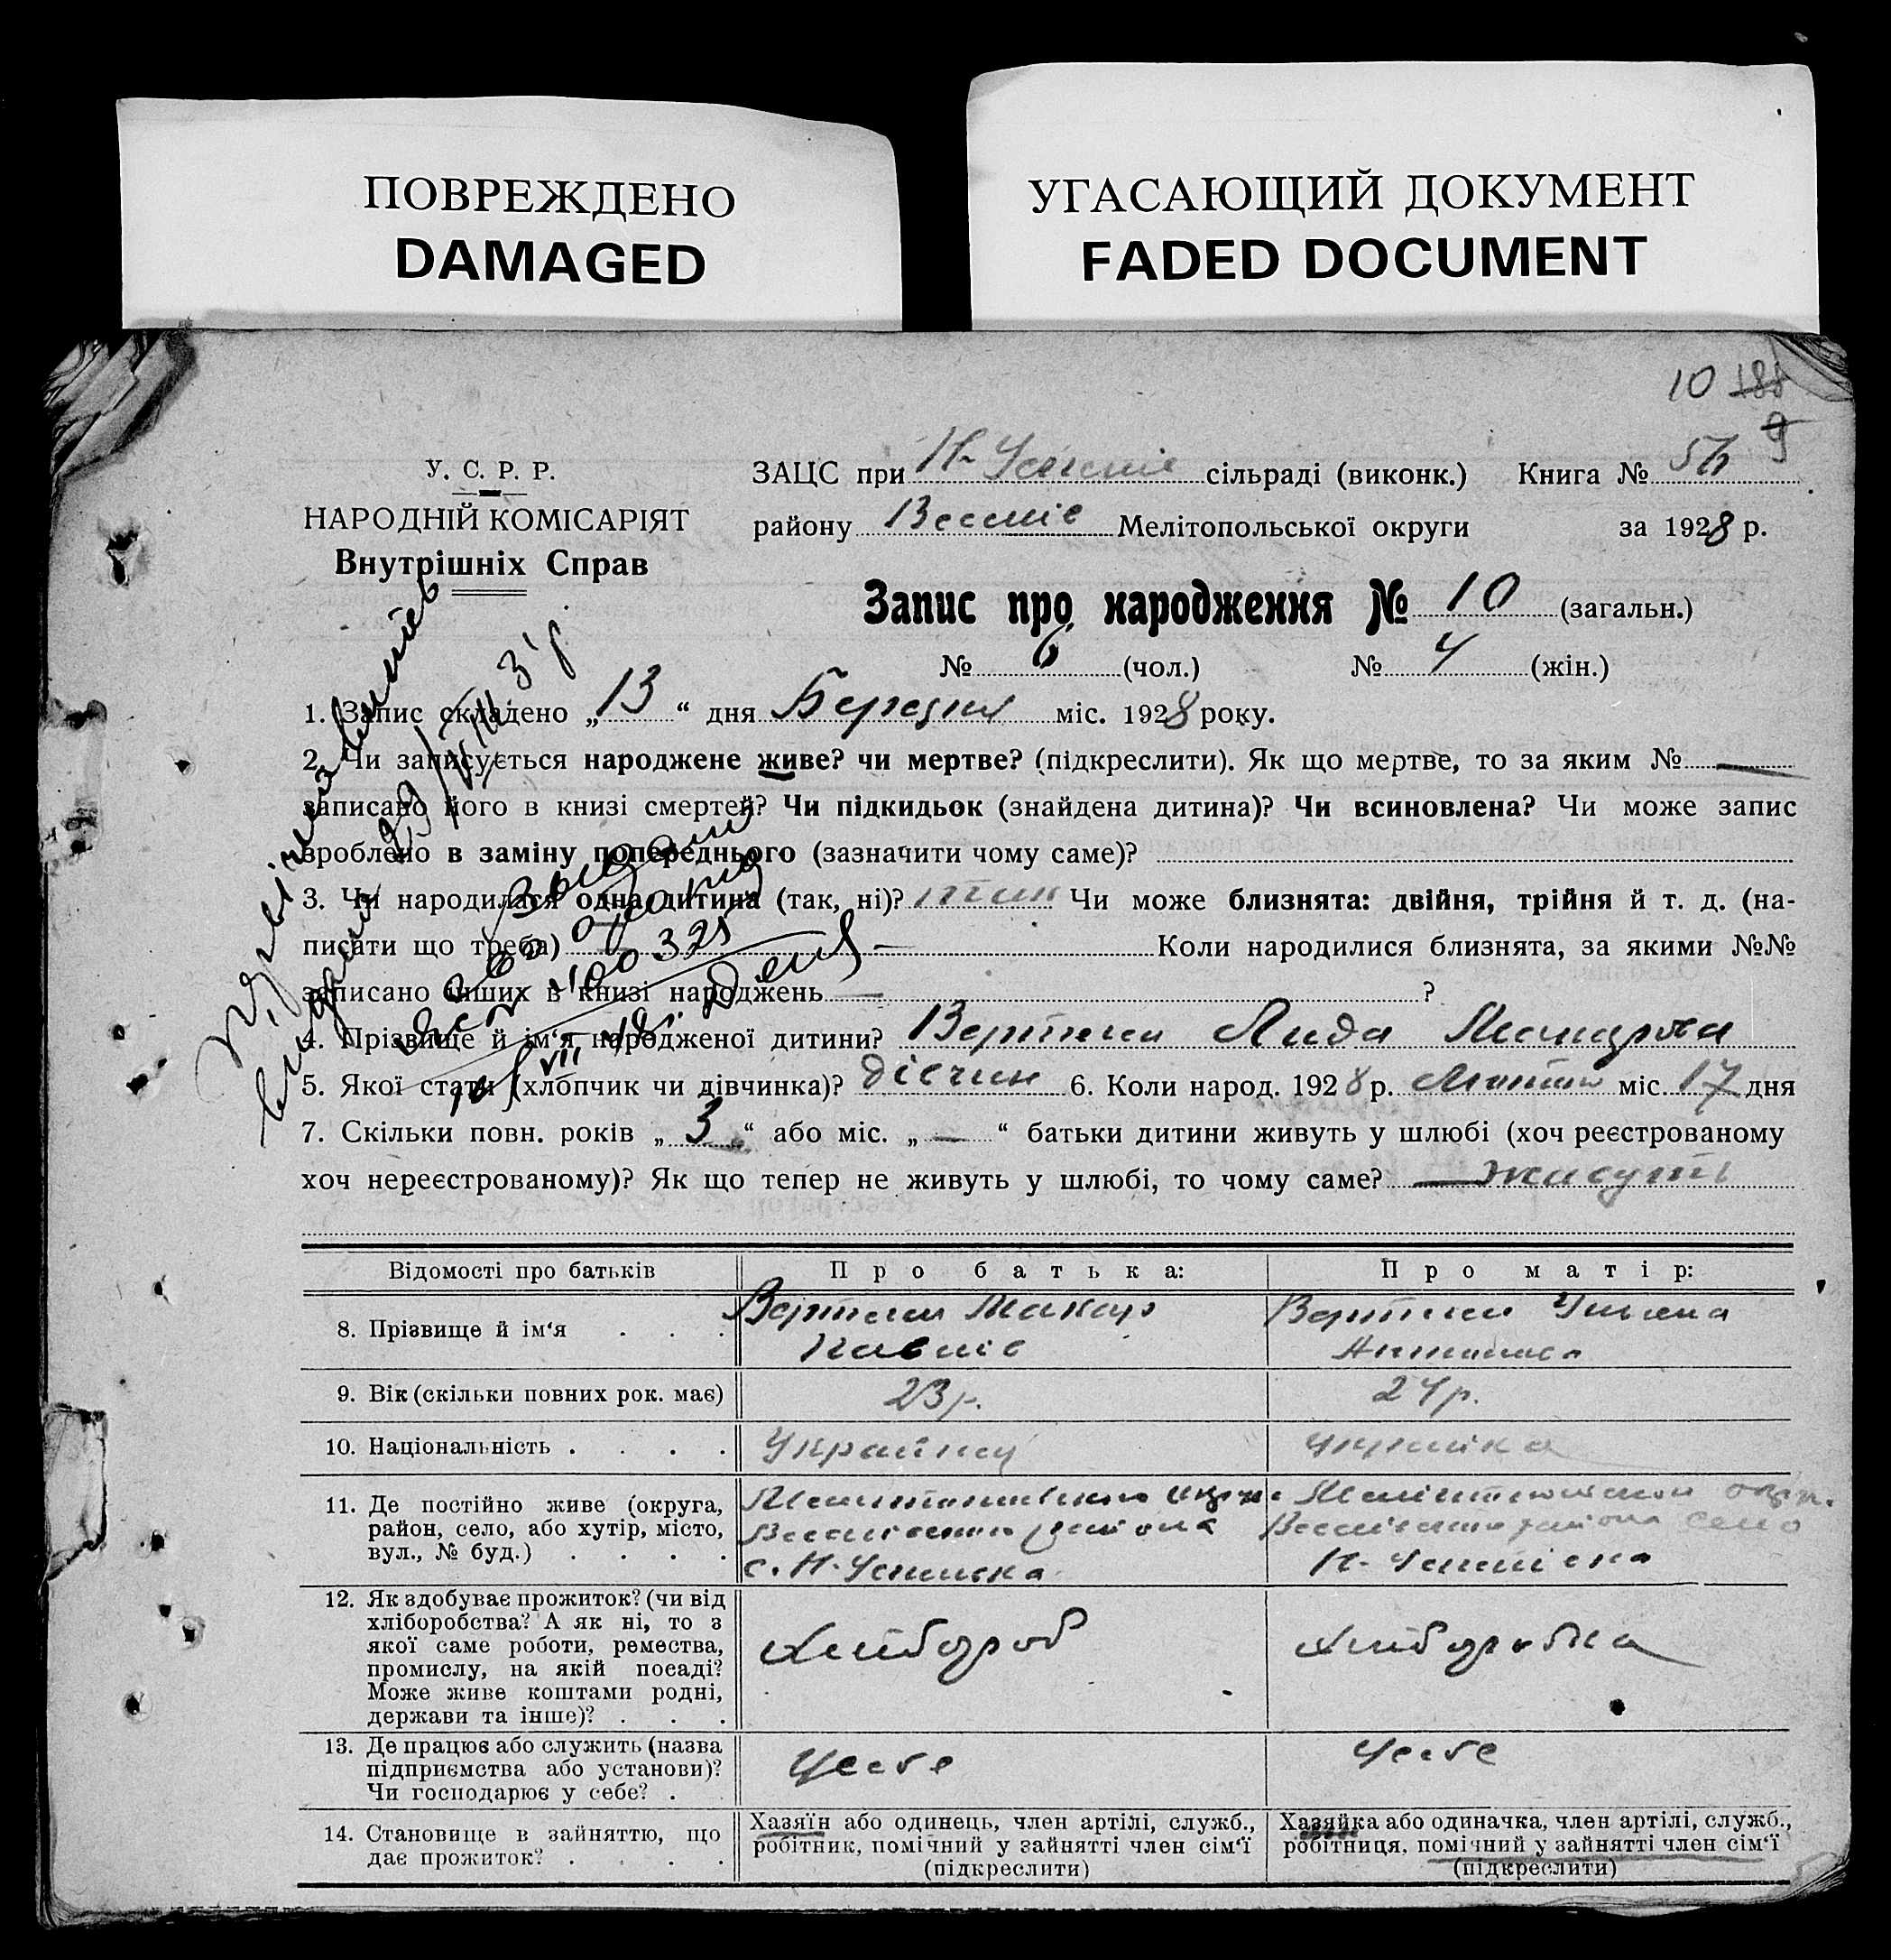 ПОВРЕЖДЕНО
DAMAGED
УГАСАЮЩИЙ ДОКУМЕНТ
FADED DOCUMENT
10 188
9
У. С. Р. Р.
НАРОДНІЙ КОМІСАРІЯТ
Внутрішніх Справ
ЗАЦС при сільраді (виконк.) Книга №
району Веселів Мелітопольської округи за 1928 р.
Запис про народження № 10 (загальн.)
№ 6 (чол.) № 4 (жін.)
1. Запис складено „13“ дня Березня міс. 1928 року.
2. Чи записується народжене живе? чи мертве? (підкреслити). Як що мертве, то за яким № —
записано його в книзі смертей? Чи підкидьок (знайдена дитина)? Чи всиновлена? Чи може запис
зроблено в заміну попереднього (зазначити чому саме)?
3. Чи народилася одна дитина (так, ні)? так Чи може близнята: двійня, трійня й т. д. (на-
писати що треба) — Коли народилися близнята, за якими №№
записано інших в книзі народжень — ?
4. Прізвище й ім‘я народженої дитини? Лида Макаровна
5. Якої статі (хлопчик чи дівчинка)? дівчин 6. Коли народ. 1928 р. Лютого міс. 17 дня
7. Скільки повн. років „3“ або міс. „—“ батьки дитини живуть у шлюбі (хоч реєстрованому
хоч нереєстрованому)? Як що тепер не живуть у шлюбі, то чому саме? — живуть
Відомості про батьків Про батька: Про матір:
8. Прізвище й ім‘я . . . Макар
Павлів Уляна
9. Вік (скільки повних рок. має) 23 р. 24 р.
10. Національність . . . . Українец Українка
11. Де постійно живе (округа,
район, село, або хутір, місто,
вул., № буд.) . . . .
Веселівского района
с. Н-Успенівка
Веселівского района село
Н-Успенівка
12. Як здобуває прожиток? (чи від
хліборобства? А як ні, то з
якої саме роботи, ремества,
промислу, на якій посаді?
Може живе коштами родні,
держави та інше)? . . .
Хлибороб Хлиборобка
13. Де працює або служить (назва
підприємства або установи)?
Чи господарює у себе? .
У себе У себе
14. Становище в зайняттю, що
дає прожиток? . . . .
Хазяїн або одинець, член артілі, служб.,
робітник, помічний у зайнятті член сім‘ї
(підкреслити)
Хазяйка або одиначка, член артілі, служб.,
робітниця, помічний у зайнятті член сім‘ї
(підкреслити)